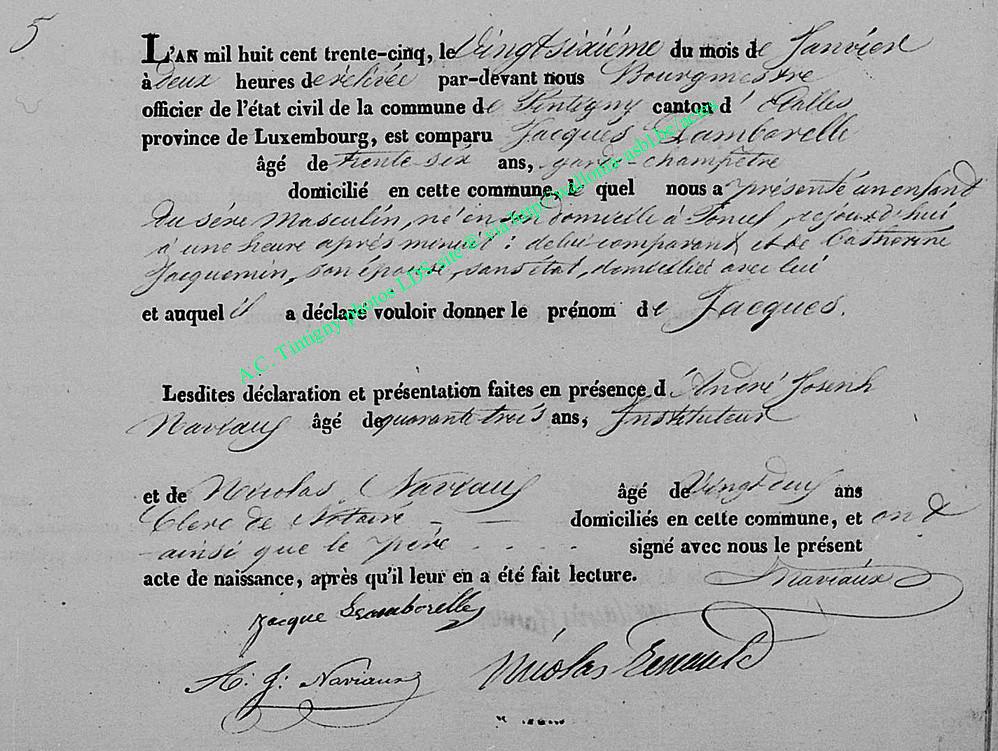 5
L'AN mil huit cent trente-cinq, le Vingt sixiéme du mois de Janvier
à deux heures de relivée par-devant nous Bourgmestre
officier de l'état civil de la commune de Tintigny canton d' Etalles
province de Luxembourg, est comparu Jacques Lamborelle
âgé de trente six ans, garde-champêtre
domicilié en cette commune, le quel nous a présenté un enfant
du séxe Masculin, né en son domicile à , cejourd'hui
à une heure après minuit : de lui comparant et de Catherine
Jacquemin, son épouse, sans état, domiciliée avec lui
et auquel il a déclaré vouloir donner le prénom de Jacques.
Lesdites déclaration et présentation faites en présence d' André Joseph
Naviaux âgé de quarante trois ans, Instituteur
et de Nicolas Naviaux âgé de Vingt deux ans
Clerc de Notaire - - domiciliés en cette commune, et ont
ainsi que le père - - - - signé avec nous le présent
acte de naissance, après qu'il leur en a été fait lecture. Naviaux
Jacque Lamborelle
A. J. Naviaux Nicolas
A.C. Tintigny photos LDS site @ via http://wallonia-asbl.be/actes